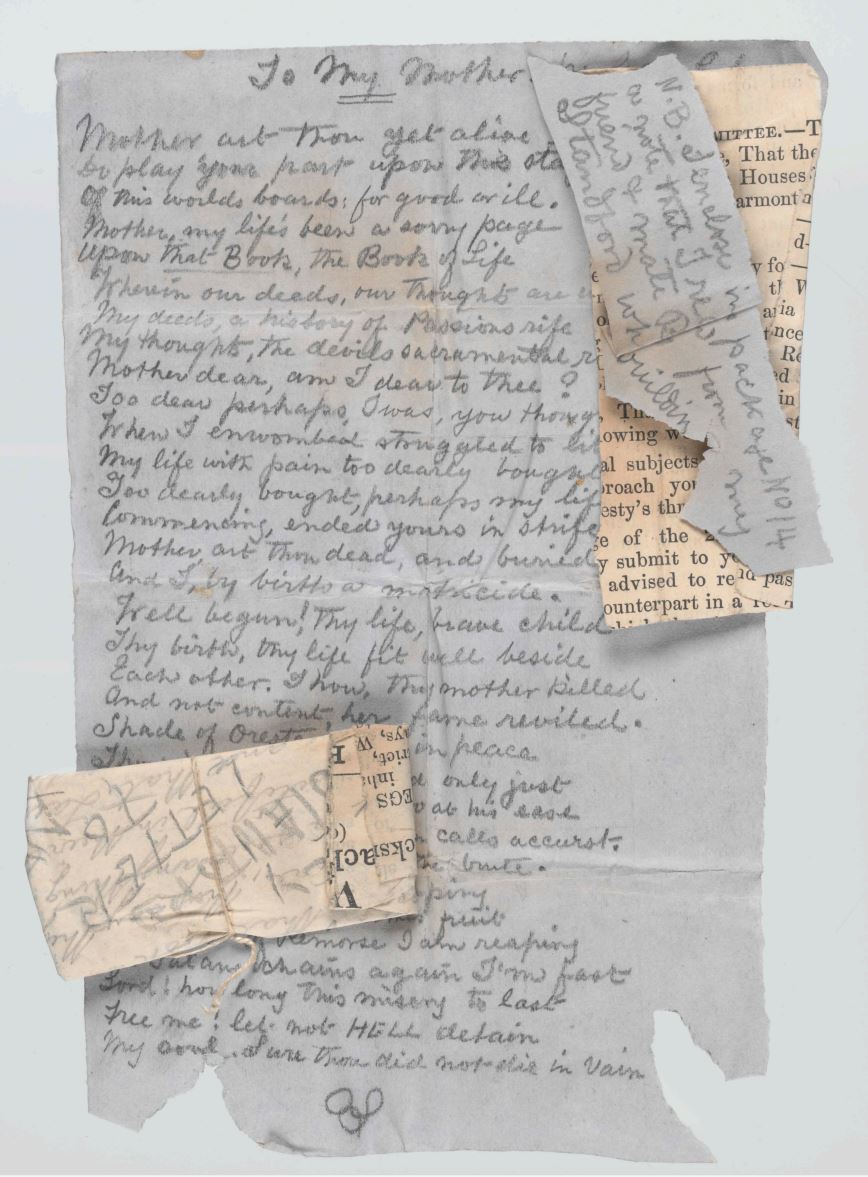 To My Mother
Mother art thou yet alive
Do play your part upon this
Of this worlds boards; for good or ill.
Mother, my life's been a sorry page
Upon that Book, the Book of Life
Wherein our deeds, our thoughts are
My deeds, a history of Passions rife
My thoughts, the devils sacramental
Mother dear, am I dear to thee?
Too dear perhaps, I was, you
When I enwombed struggled to
My life with pain too dearly bought
Too dearly bought, perhaps my
Commencing, ended yours in strife
Mother, art thou dead, and buried
And I, by birth a matricide.
Well begun! Thy life, brave child
Thy birth, thy life fit well beside
Each other. Thou, thy mother killed
And not content, her fame reviled.
Shade of
in peace
only just
at his ease
calls accurst.
the brute.
fruit
Remorse I am reaping
Satans chains again I'm fast
Lord! how long this misery to last
Free me! let not HELL detain
My soul. Sure thou did not die in Vain
N.B. I enclose in package No 14
a note that I rec from my
friend & mate
Standford who
building
MITTEE.—T
, That the
Houses
armont
d-
y fo
W
ia
nce
Re
ed
in
Th
lowing w
al subjects
proach you
esty's thr
e of the 2
y submit to y
advised to re
pas
ounterpart in a
LETTER
TO
rict, W
inha
EGS
cksm